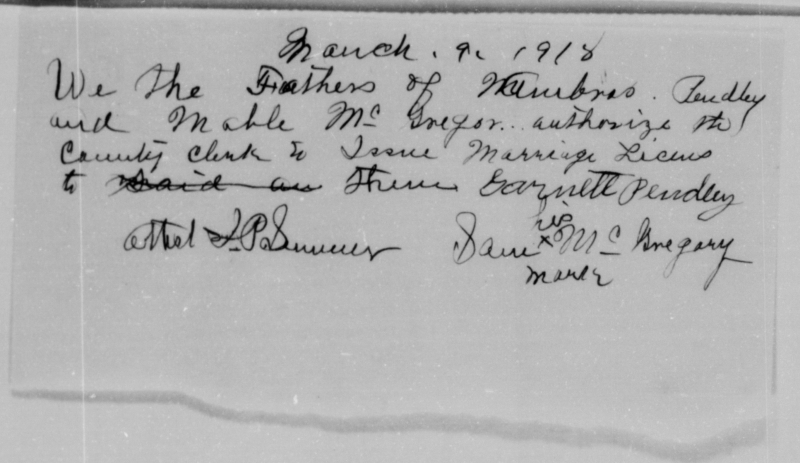 March. 9. 1918
We the Fathers of Pendley
and Mable Mc Gregor.. authorize the
County Clerk to Issue Marriage Licens
to said an them Garnett Pendley
his
attest J. P. Sumner Sam x Mc Gregory
mark